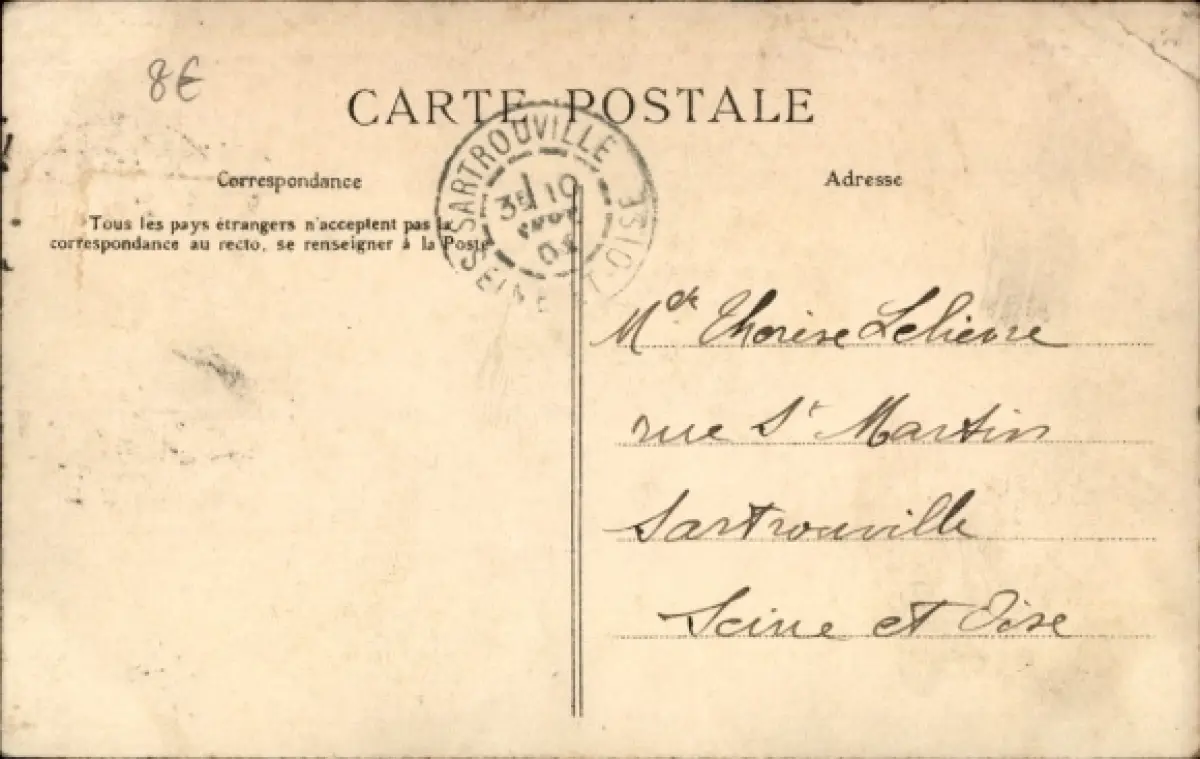 8€
CARTE POSTALE
SARTROUVILLE
SEINE-ET-OISE
3E 10
Correspondance
Adresse
Tous les pays étrangers n'acceptent pas la
correspondance au recto, se renseigner à la Poste
Melle Thérèse Lelievre
rue St Martin
Sartrouville
Seine et Oise